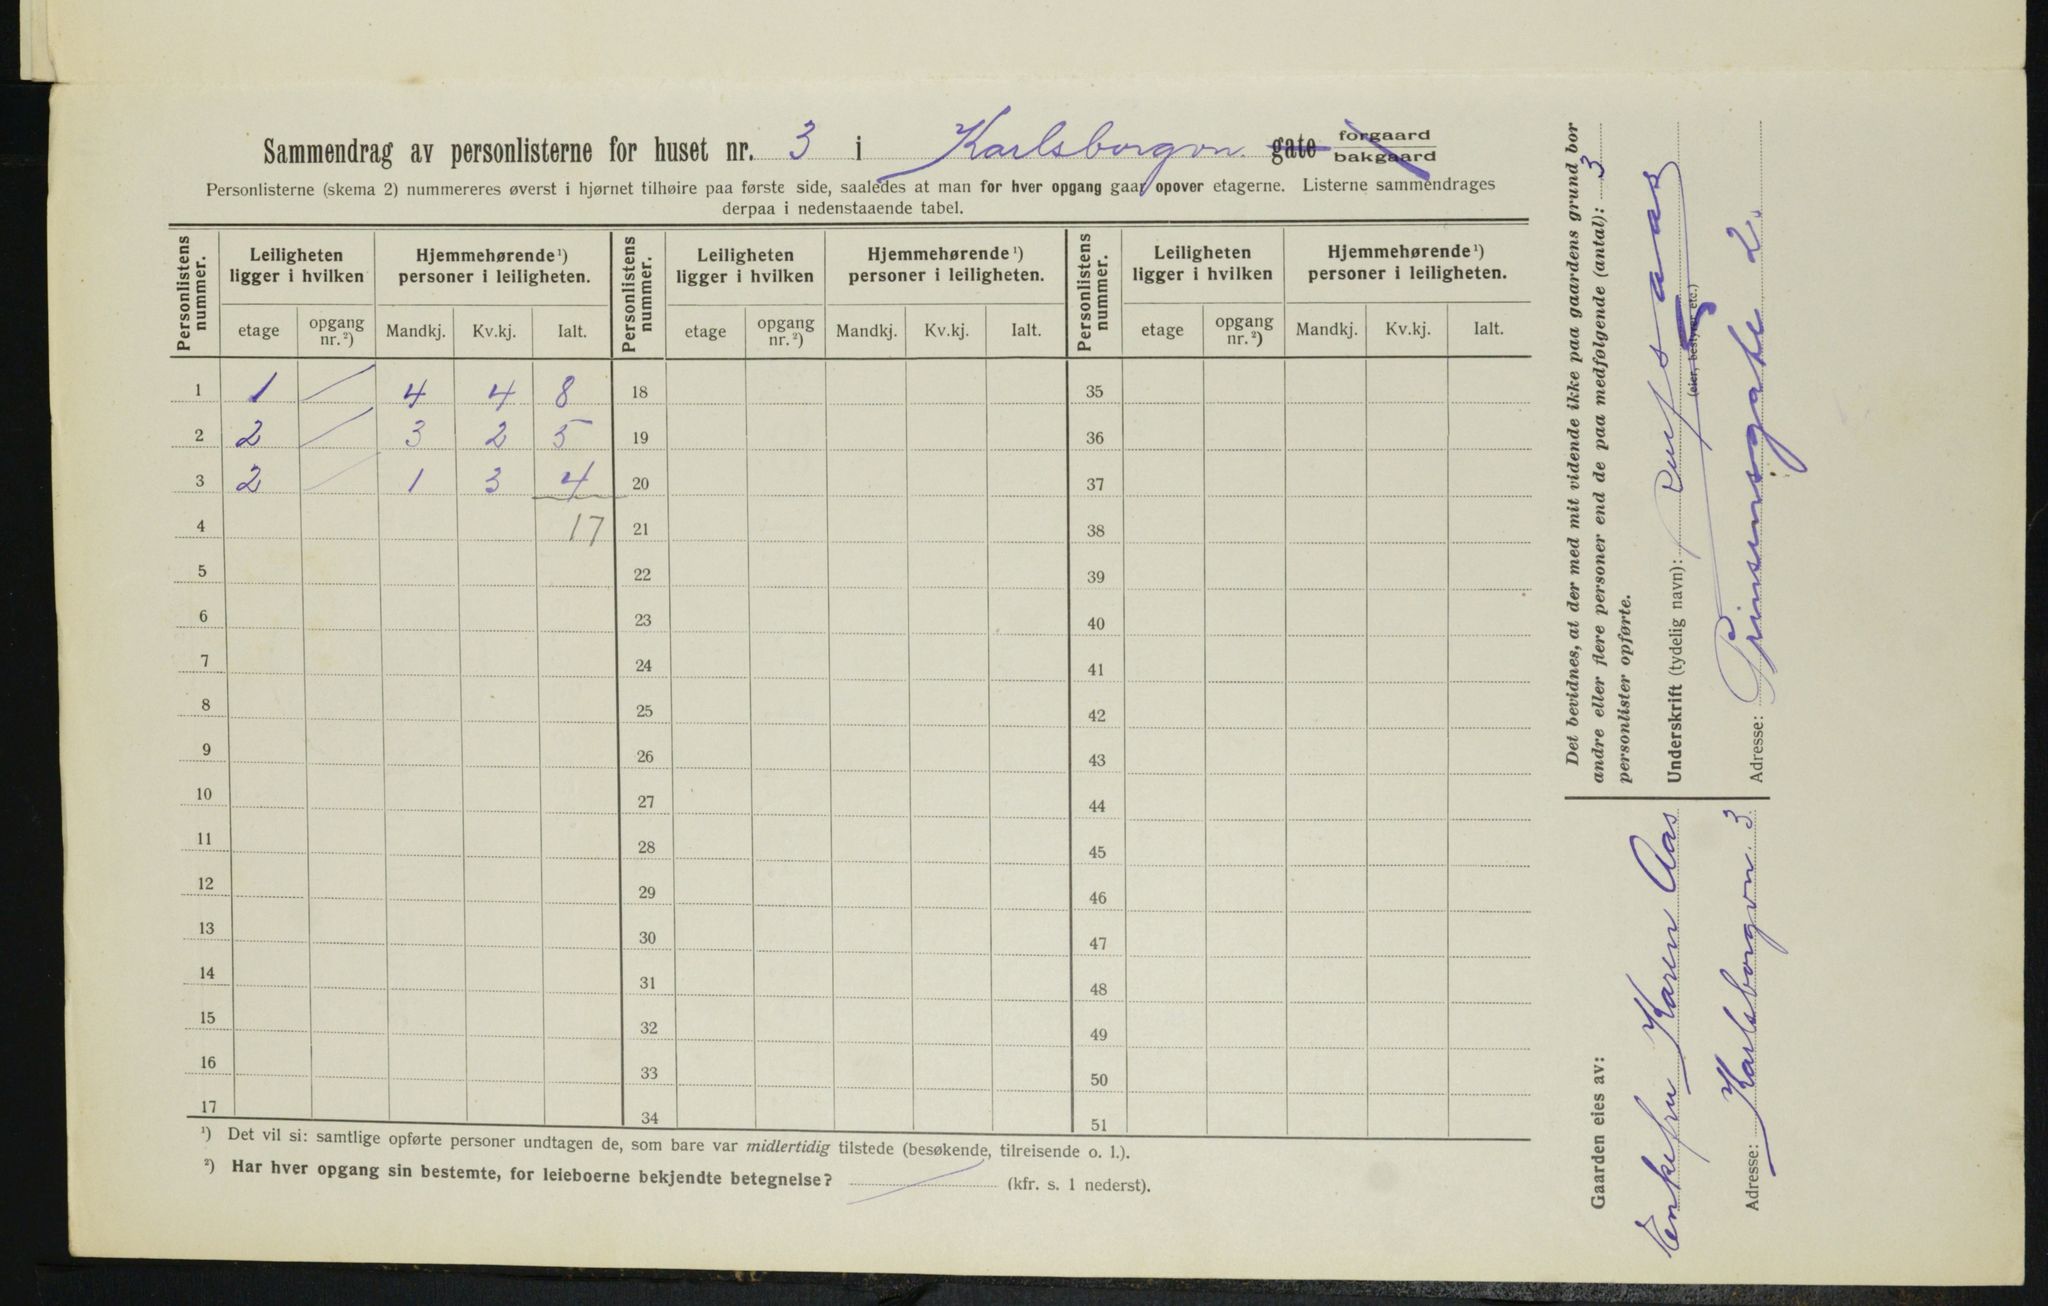 Sammendrag av personlisterne for huset nr. 3 i Karlsborgvn. gate forgaard bakgaard
Personlisterne (skema 2) nummereres øverst i hjørnet tilhøire paa første side, saaledes at man for hver opgang gaar opover etagerne. Listerne sammendrages
derpaa i nedenstaaende tabel.
Personlistens nummer. Leiligheten ligger i hvilken Hjemmehørende¹) personer i leiligheten. Personlistens nummer. Leiligheten ligger i hvilken Hjemmehørende¹) personer i leiligheten. Personlistens nummer. Leiligheten ligger i hvilken Hjemmehørende¹) personer i leiligheten.
etage opgang nr.²) Mandkj. Kv.kj. Ialt. etage opgang nr.²) Mandkj. Kv.kj. Ialt. etage opgang nr.²) Mandkj. Kv.kj. Ialt.
1 1 / 4 4 8 18 35
2 2 / 3 2 5 19 36
3 2 / 1 3 4 20 37
4 17 21 38
5 22 39
6 23 40
7 24 41
8 25 42
9 26 43
10 27 44
11 28 45
12 29 46
13 30 47
14 31 48
15 32 49
16 33 50
17 34 51
¹) Det vil si: samtlige opførte personer undtagen de, som bare var midlertidig tilstede (besøkende, tilreisende o. l.).
²) Har hver opgang sin bestemte, for leieboerne bekjendte betegnelse? / (kfr. s. 1 nederst).
Det bevidnes, at der med mit vidende ikke paa gaardens grund bor
andre eller flere personer end de paa medfølgende (antal): 3
personlister opførte.
Underskrift (tydelig navn): Aas
(eier, bestyrer etc.)
Adresse: Prinsensgate 2.
Gaarden eies av:
Enkefru Karen Aas
Adresse: Karlsborgvn. 3